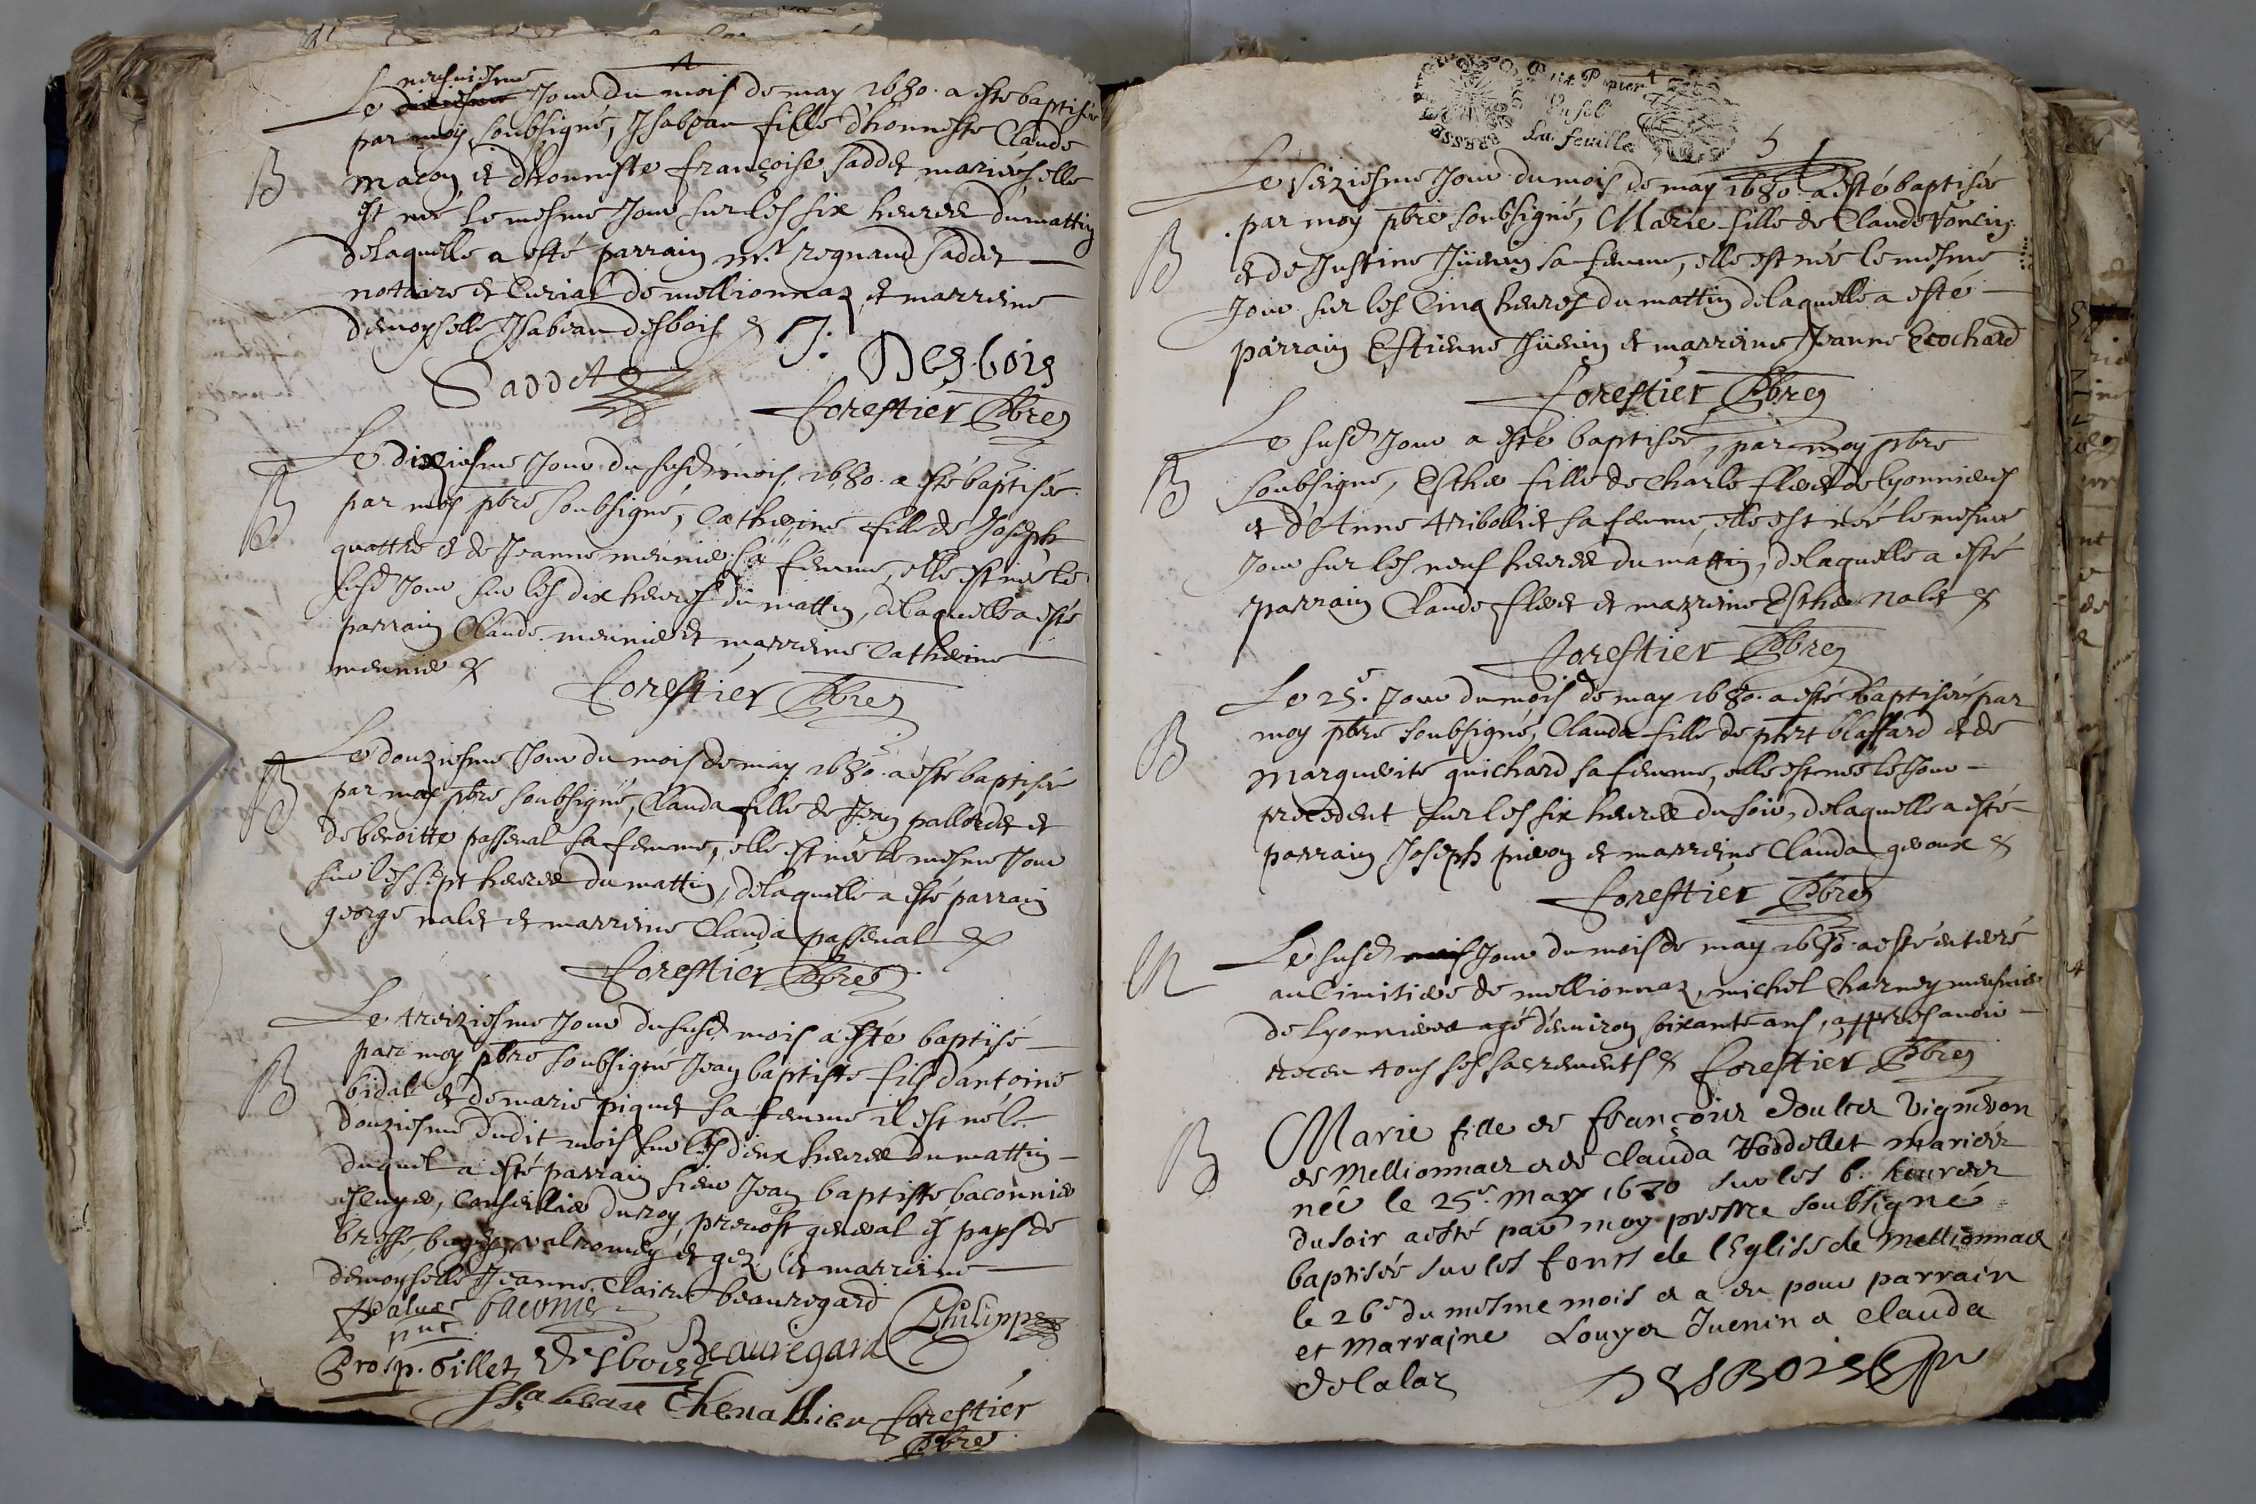 4
neufviesme
Le dixiesme Jour du mois de may 1680. a esté baptisée
par moy soubsigné, Isabeau fille d'honneste Claude
B
macon et d'honneste françoise saddet mariés, elle
est neé le mesme Jour sur les six heures du mattin
delaquelle a esté parrain mr. regnaud saddet
nottaire et Curial de mellionnaz et marreine
demoyselle Isabeau desbois &
Saddet J: Desbois
forestier pbre
Le dixiesme Jour du susd. mois 1680. a esté baptisée
B
par moy pbre soubsigné, Catherine fille de Joseph
quattre et de Jeanne meunier sa femme, elle est neé le
susd. Jour sur les dix heures du mattin, delaquelle a esté
parrain Claude meunier et marreine Catherine
meunier &
forestier pbre
Le douziesme Jour du mois de may 1680. a esté baptisée
B
par moy pbre soubsigné, Clauda fille de Jean pallordet et
de benoitte passerat sa femme, elle est neé le mesme Jour
sur les sept heures du mattin, delaquelle a esté parrain
george nalet et marreine Clauda passerat &
forestier pbre
Le treiziesme Jour du susd. mois a esté baptisé
B
par moy pbre soubsigné Jean baptiste fils d'antoine
bidal et de marie piquet sa femme il est né le
douziesme dudit mois sur les deux heures du mattin
duquel a esté parrain sieur Jean baptiste baconnier
escuyer, Conseillier du roy, prevost general es pays de
bresse, bugey, valromey et gex, et marreine
demoyselle Jeanne Claire beauregard
baconier
Philippe
Prosp. Gillet Desbois Beauregard
Isabeau Chevallier forestier
pbre
Petit Papier
Un sol
La feuille
5
Le seiziesme Jour du mois de may 1680. a esté baptisée
B
par moy pbre soubsigné, Marie fille de Claude foncin
et de Justine Jüenin sa femme, elle est neé le mesme
Jour sur les Cinq heures du mattin delaquelle a esté
parrain Estienne Jüenin et marreine Jeanne Ecochard
forestier pbre
Le susd. Jour a esté baptisée, par moy pbre
B
soubsigné, Esther fille de Charle fleret de lyonnieres
et d'Anne tribollet sa femme, elle est neé le mesme
Jour sur les neuf heures du mattin, delaquelle a esté
parrain Claude fleret et marreine Esther nalet &
forestier pbre
Le 25e. Jour du mois de may 1680. a esté baptisée par
B
moy pbre soubsigné, Clauda fille de phrt blassard et de
marguerite guichard sa femme, elle est neé le Jour
precedent sur les six heures du soir, delaquelle a esté
parrain Joseph prevon et marreine Clauda gevoux &
forestier pbre
M
Le susd. mois Jour du mois de may 1680. a esté enterré
au Cimitiere de mellionnaz, michel Charney meusnier
de Lyonnieres agé d'environ soixante ans, appres avoir
receu tous ses sacrements & forestier pbre
B
Marie fille de françois Doulcet Vigneron
de Mellionnaz et de Clauda Hoddellet mariés
née le 25e. May 1680 sur les 6. heures
du soir a esté par moy prestre soubsigné
baptisée sur les fonts de l'Eglise de Mellionnaz
le 26e du mesme mois et a eu pour parrain
et marraine Louys Juenin et Clauda
Delalaz
DESBOIS